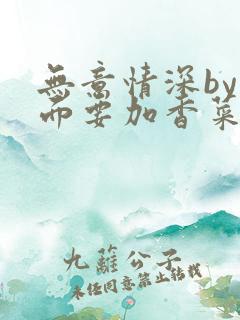 無意情深by
而要加香菜
九蘿公子
未经同意禁止转载